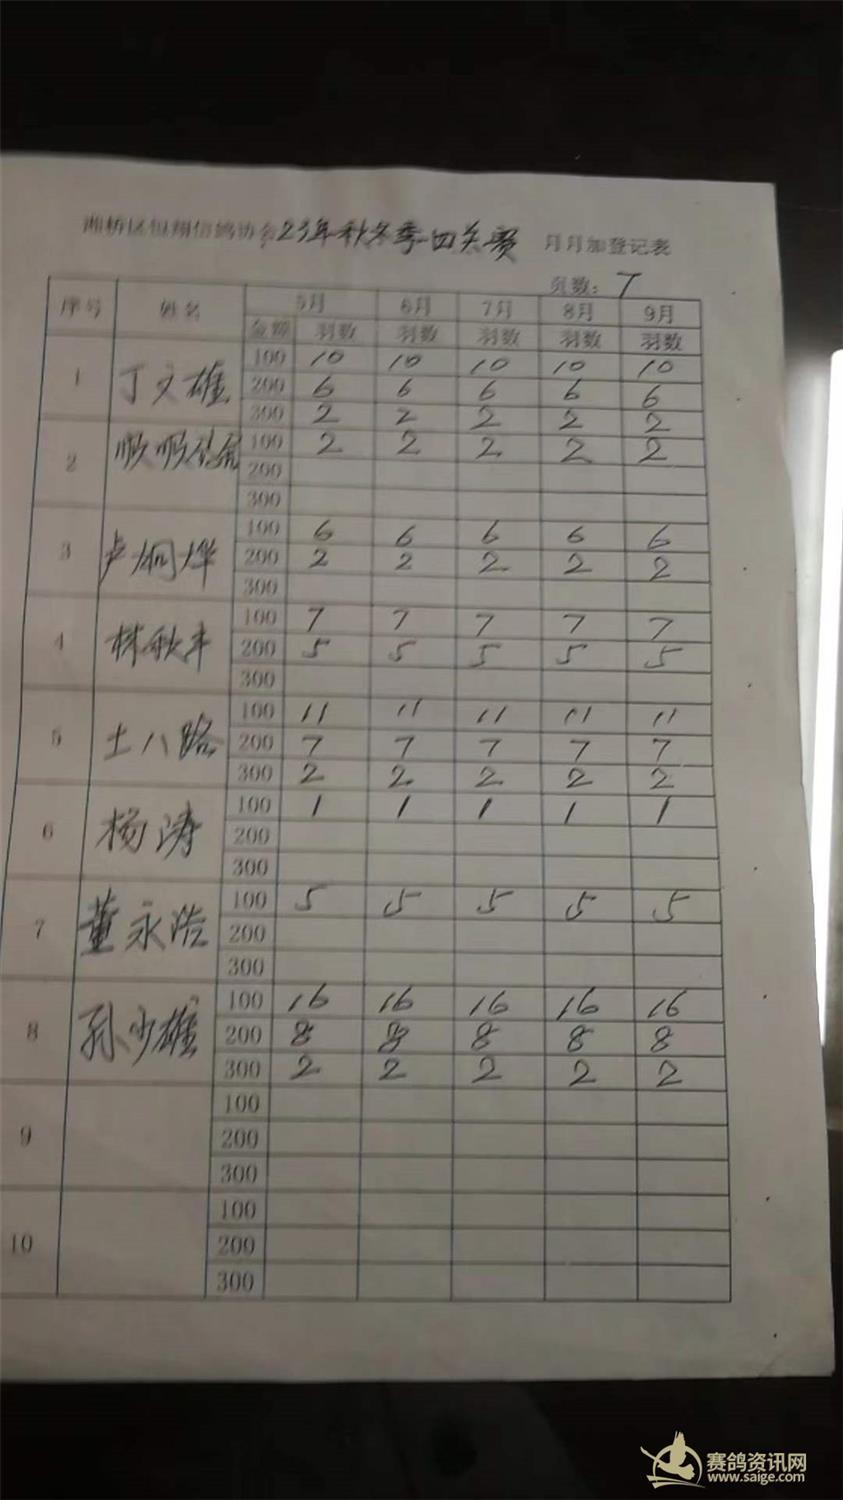 湘桥区恒翔信鸽协会23年秋冬季四关赛 月月加登记表
页数: 7
序号 姓名 5月 6月 7月 8月 9月
金额 羽数 羽数 羽数 羽数 羽数
1 丁文雄 100 10 10 10 10 10
200 6 6 6 6 6
300 2 2 2 2 2
2 顺顺 100 2 2 2 2 2
200
300
3 卢炯烨 100 6 6 6 6 6
200 2 2 2 2 2
300
4 林秋丰 100 7 7 7 7 7
200 5 5 5 5 5
300
5 土八路 100 11 11 11 11 11
200 7 7 7 7 7
300 2 2 2 2 2
6 杨涛 100 1 1 1 1 1
200
300
7 董永浩 100 5 5 5 5 5
200
300
8 孙少雄 100 16 16 16 16 16
200 8 8 8 8 8
300 2 2 2 2 2
9 100
200
300
10 100
200
300
赛鸽资讯网
www.saige.com